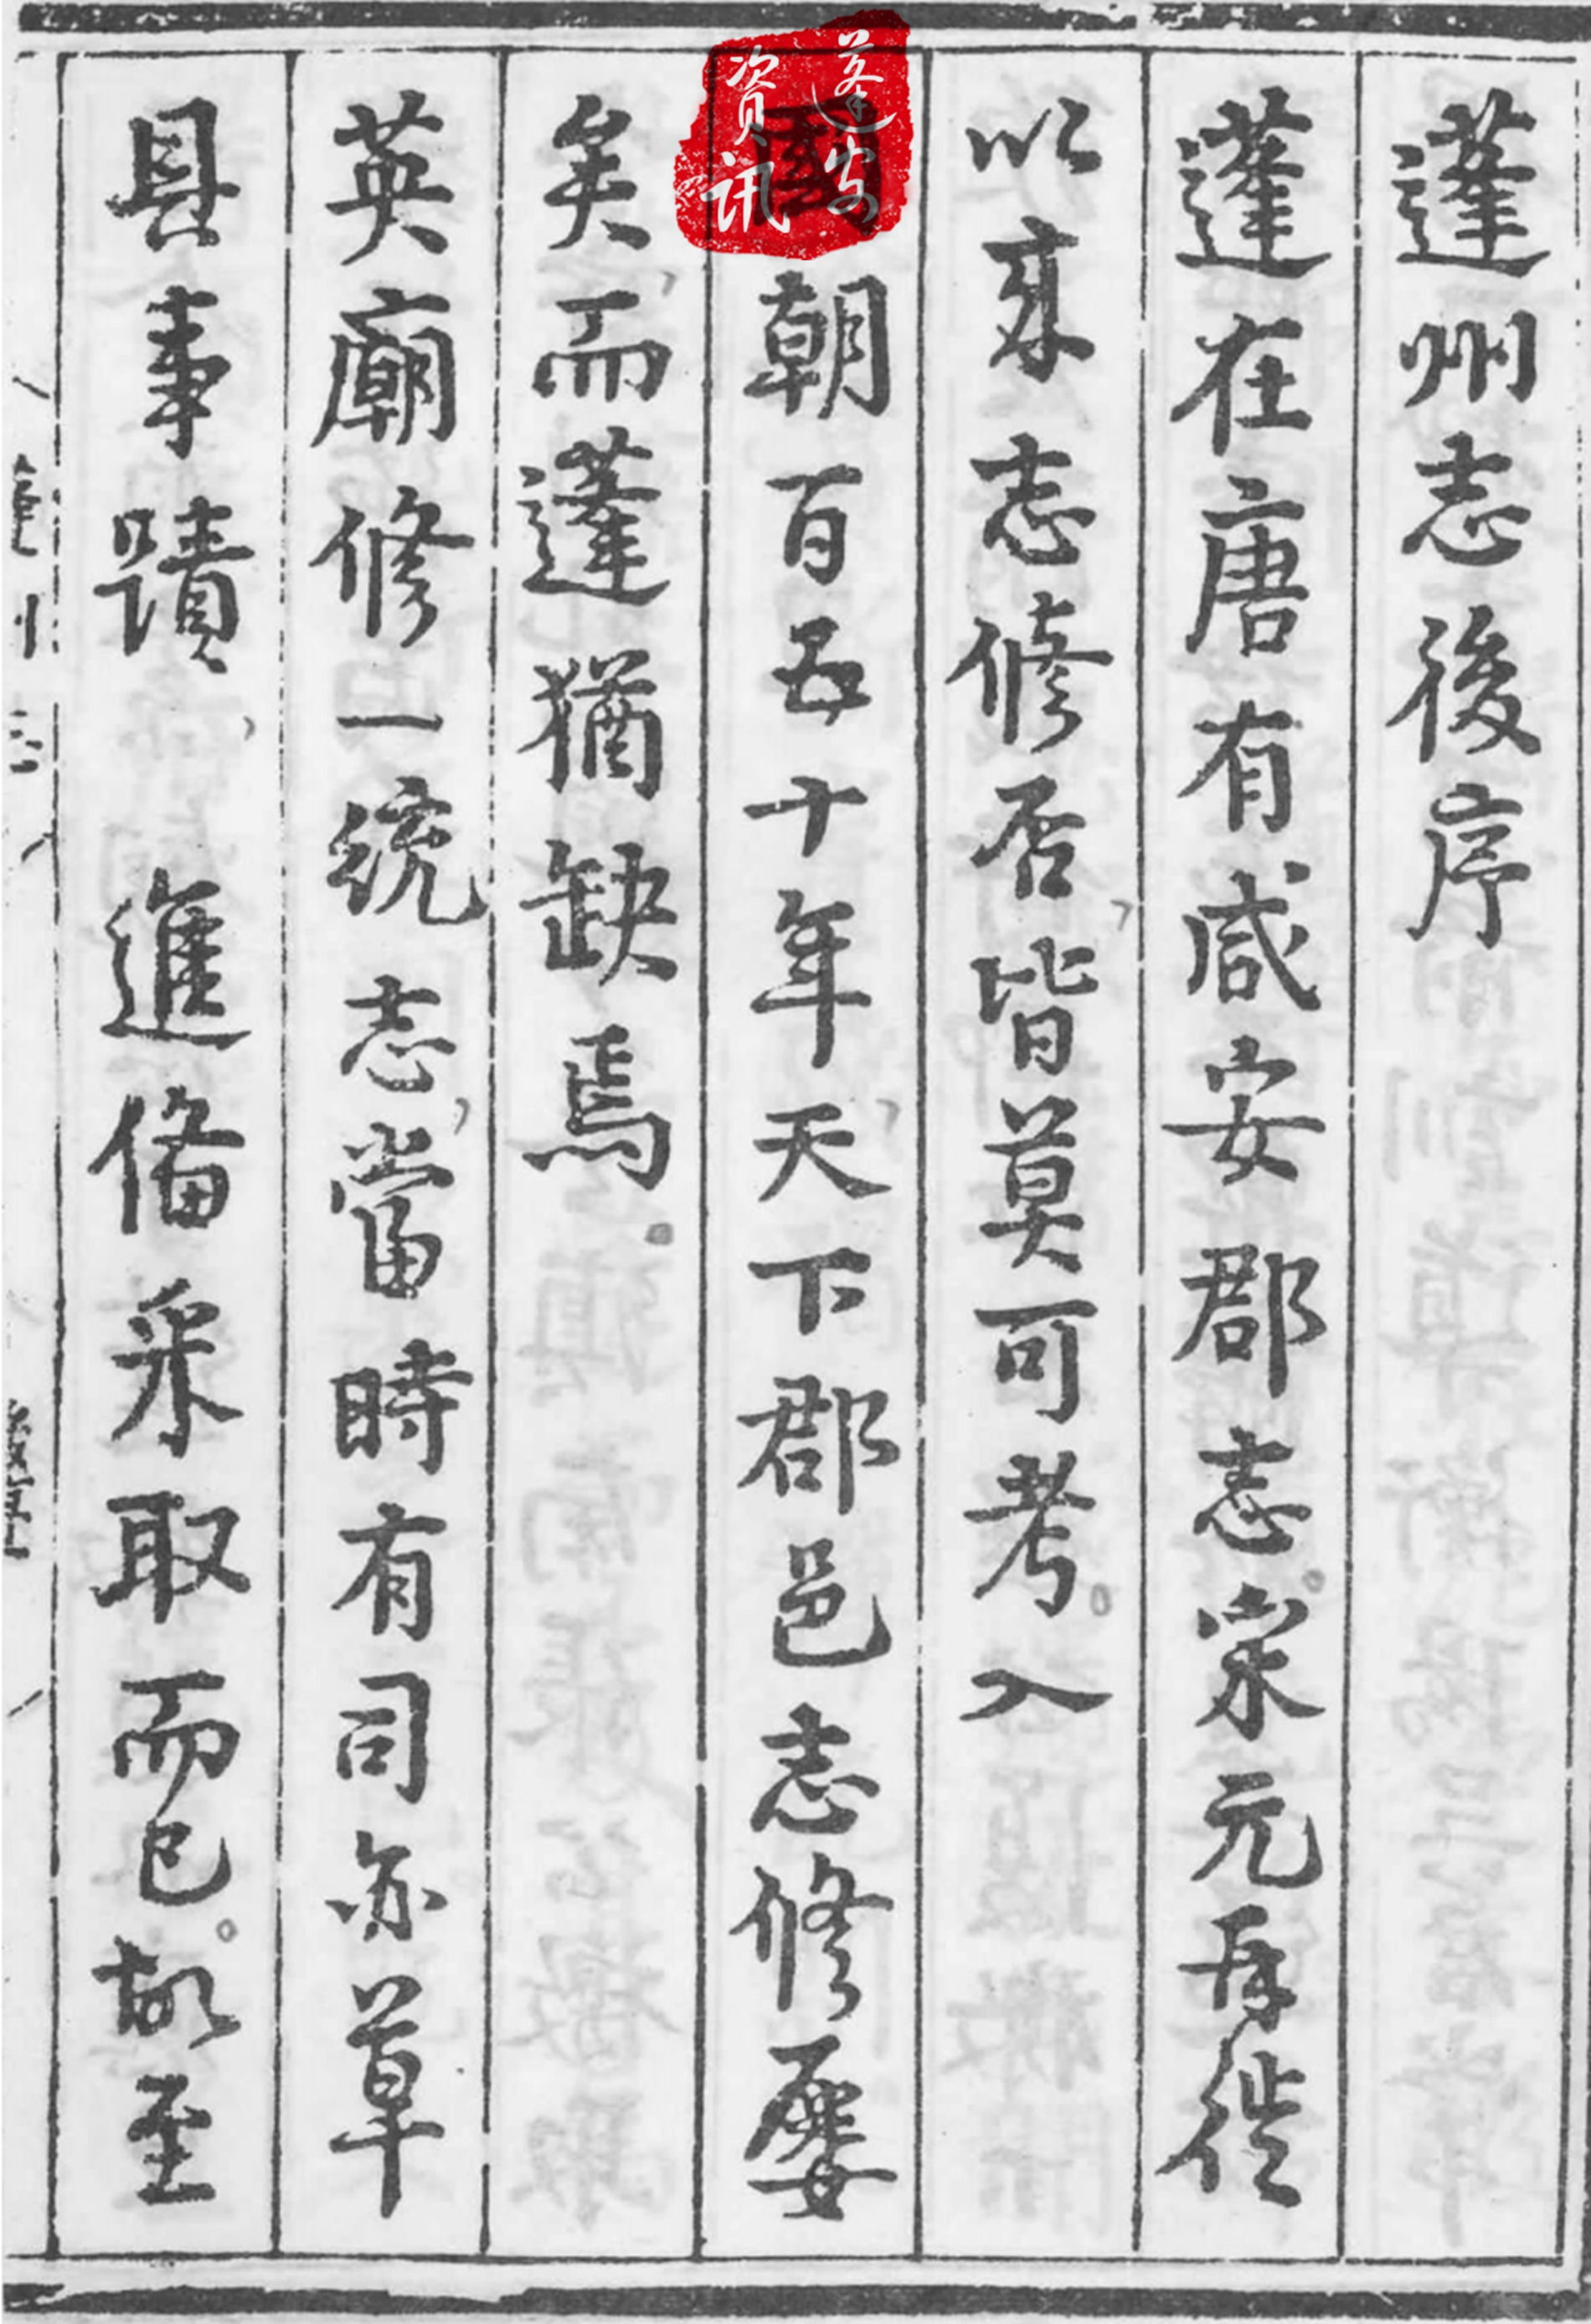 蓬州志後序
蓬在唐有咸安郡志宋元再徙
以来志修否皆莫可考入
國朝百五十年天下郡邑志修屢
矣而蓬猶缺焉
英廟修一統志當時有司亦草
具事蹟進俻采取而已故至
蓬安
資訊